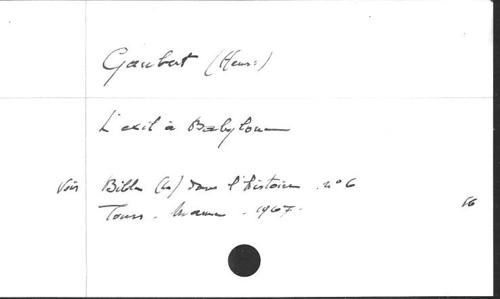 Gaubert (Henri)
L'exil à Babylone
Voir Bible (la) dans l'histoire. n° 6
Tours. Mame. 1967.
16